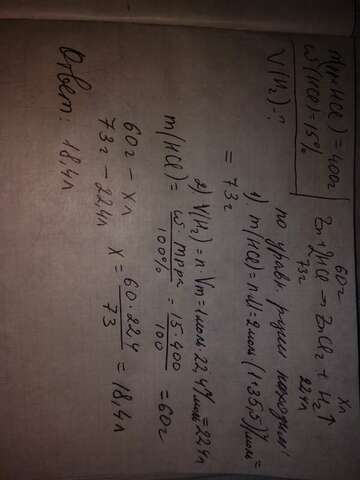 m(p-pHCl) = 400г
ω(HCl) = 15%
V(H₂) - ?
60г xл
Zn + 2HCl → ZnCl₂ + H₂↑
73г 22,4л
по уравн. р-ции находим:
1) m(HCl) = n·M = 2моль·(1+35,5)г/моль =
= 73г
2) V(H₂) = n·Vm = 1моль·22,4л/моль = 22,4л
m(HCl) = ω·mр-ра / 100% = 15·400 / 100 = 60г
60г – xл
73г – 22,4л x = 60·22,4 / 73 = 18,4л
Ответ: 18,4л